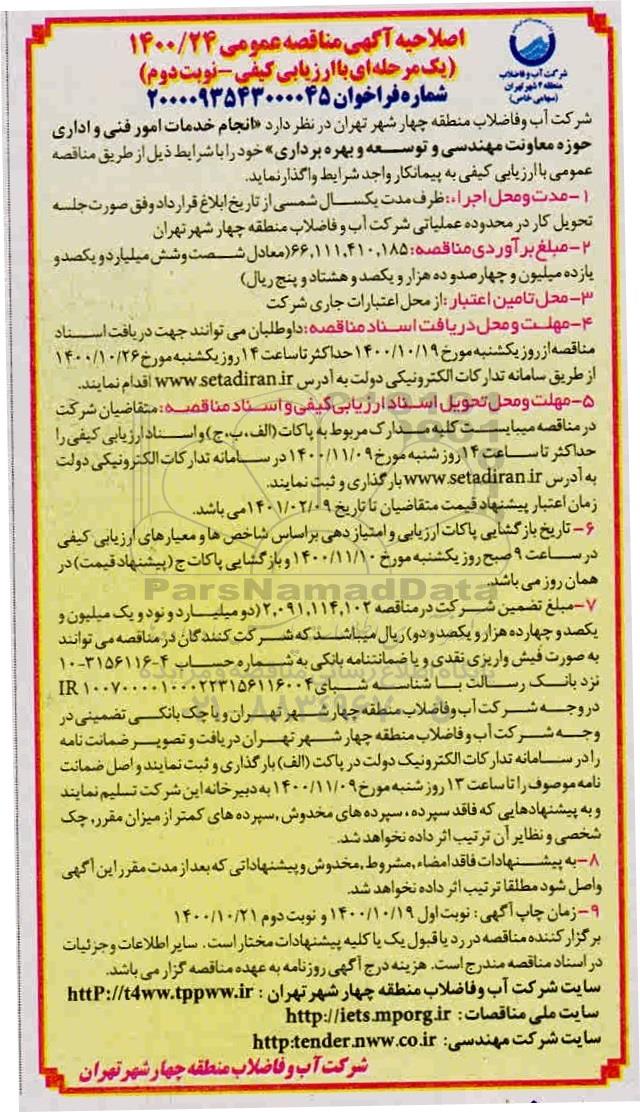 اصلاحیه آگهی مناقصه عمومی ۱۴۰۰/۲۴
(یک مرحله‌ای با ارزیابی کیفی – نوبت دوم)
شماره فراخوان ۲۰۰۰۰۹۳۵۴۳۰۰۰۰۴۵
شرکت آب و فاضلاب
منطقه ۴ شهر تهران
(سهامی خاص)
شرکت آب وفاضلاب منطقه چهار شهر تهران در نظر دارد «انجام خدمات امور فنی و اداری
حوزه معاونت مهندسی و توسعه و بهره برداری» خود را با شرایط ذیل از طریق مناقصه
عمومی با ارزیابی کیفی به پیمانکار واجد شرایط واگذار نماید.
۱-مدت و محل اجراء: ظرف مدت یکسال شمسی از تاریخ ابلاغ قرارداد وفق صورت جلسه
تحویل کار در محدوده عملیاتی شرکت آب و فاضلاب منطقه چهار شهر تهران
۲-مبلغ برآوردی مناقصه: ۶۶,۱۱۱,۴۱۰,۱۸۵ (معادل شصت وشش میلیارد و یکصد و
یازده میلیون و چهارصد و ده هزار و یکصد و هشتاد و پنج ریال)
۳-محل تامین اعتبار: از محل اعتبارات جاری شرکت
۴-مهلت و محل دریافت اسناد مناقصه: داوطلبان می توانند جهت دریافت اسناد
مناقصه از روز یکشنبه مورخ ۱۴۰۰/۱۰/۱۹ حداکثر تا ساعت ۱۴ روز یکشنبه مورخ ۱۴۰۰/۱۰/۲۶
از طریق سامانه تدارکات الکترونیکی دولت به آدرس www.setadiran.ir اقدام نمایند.
۵-مهلت و محل تحویل اسناد ارزیابی کیفی و اسناد مناقصه: متقاضیان شرکت
در مناقصه میبایست کلیه مدارک مربوط به پاکات (الف،ب،ج) و اسناد ارزیابی کیفی را
حداکثر تا ساعت ۱۴ روز شنبه مورخ ۱۴۰۰/۱۱/۰۹ در سامانه تدارکات الکترونیکی دولت
به آدرس www.setadiran.ir بارگذاری و ثبت نمایند.
زمان اعتبار پیشنهاد قیمت متقاضیان تا تاریخ ۱۴۰۱/۰۲/۰۹ می باشد.
۶- تاریخ بازگشایی پاکات ارزیابی و امتیاز دهی بر اساس شاخص ها و معیارهای ارزیابی کیفی
در ساعت ۹ صبح روز یکشنبه مورخ ۱۴۰۰/۱۱/۱۰ و بازگشایی پاکات ج (پیشنهاد قیمت) در
همان روز می باشد.
۷-مبلغ تضمین شرکت در مناقصه ۲,۰۹۱,۱۱۴,۱۰۲ (دو میلیارد و نود و یک میلیون و
یکصد و چهارده هزار و یکصد و دو) ریال میباشد که شرکت کنندگان در مناقصه می توانند
به صورت فیش واریزی نقدی و یا ضمانتنامه بانکی به شماره حساب ۴-۳۱۵۶۱۱۶-۱۰
نزد بانک رسالت با شناسه شبای IR ۱۰۰۷۰۰۰۰۱۰۰۰۲۲۳۱۵۶۱۱۶۰۰۴
در وجه شرکت آب و فاضلاب منطقه چهار شهر تهران و یا چک بانکی تضمینی در
وجه شرکت آب و فاضلاب منطقه چهار شهر تهران دریافت و تصویر ضمانت نامه
را در سامانه تدارکات الکترونیک دولت در پاکت (الف) بارگذاری و ثبت نمایند و اصل ضمانت
نامه موصوف را تا ساعت ۱۳ روز شنبه مورخ ۱۴۰۰/۱۱/۰۹ به دبیرخانه این شرکت تسلیم نمایند
و به پیشنهادهایی که فاقد سپرده، سپرده های مخدوش، سپرده های کمتر از میزان مقرر، چک
شخصی و نظایر آن ترتیب اثر داده نخواهد شد.
۸-به پیشنهادات فاقد امضاء، مشروط، مخدوش و پیشنهاداتی که بعد از مدت مقرر این آگهی
واصل شود مطلقا ترتیب اثر داده نخواهد شد.
۹-زمان چاپ آگهی: نوبت اول ۱۴۰۰/۱۰/۱۹ و نوبت دوم ۱۴۰۰/۱۰/۲۱
برگزار کننده مناقصه در رد یا قبول یک یا کلیه پیشنهادات مختار است. سایر اطلاعات و جزئیات
در اسناد مناقصه مندرج است. هزینه درج آگهی روزنامه به عهده مناقصه گزار می باشد.
سایت شرکت آب و فاضلاب منطقه چهار شهر تهران : httP://t4ww.tppww.ir
سایت ملی مناقصات: http://iets.mporg.ir
سایت شرکت مهندسی: http:tender.nww.co.ir
شرکت آب و فاضلاب منطقه چهار شهر تهران
ParsNamadData